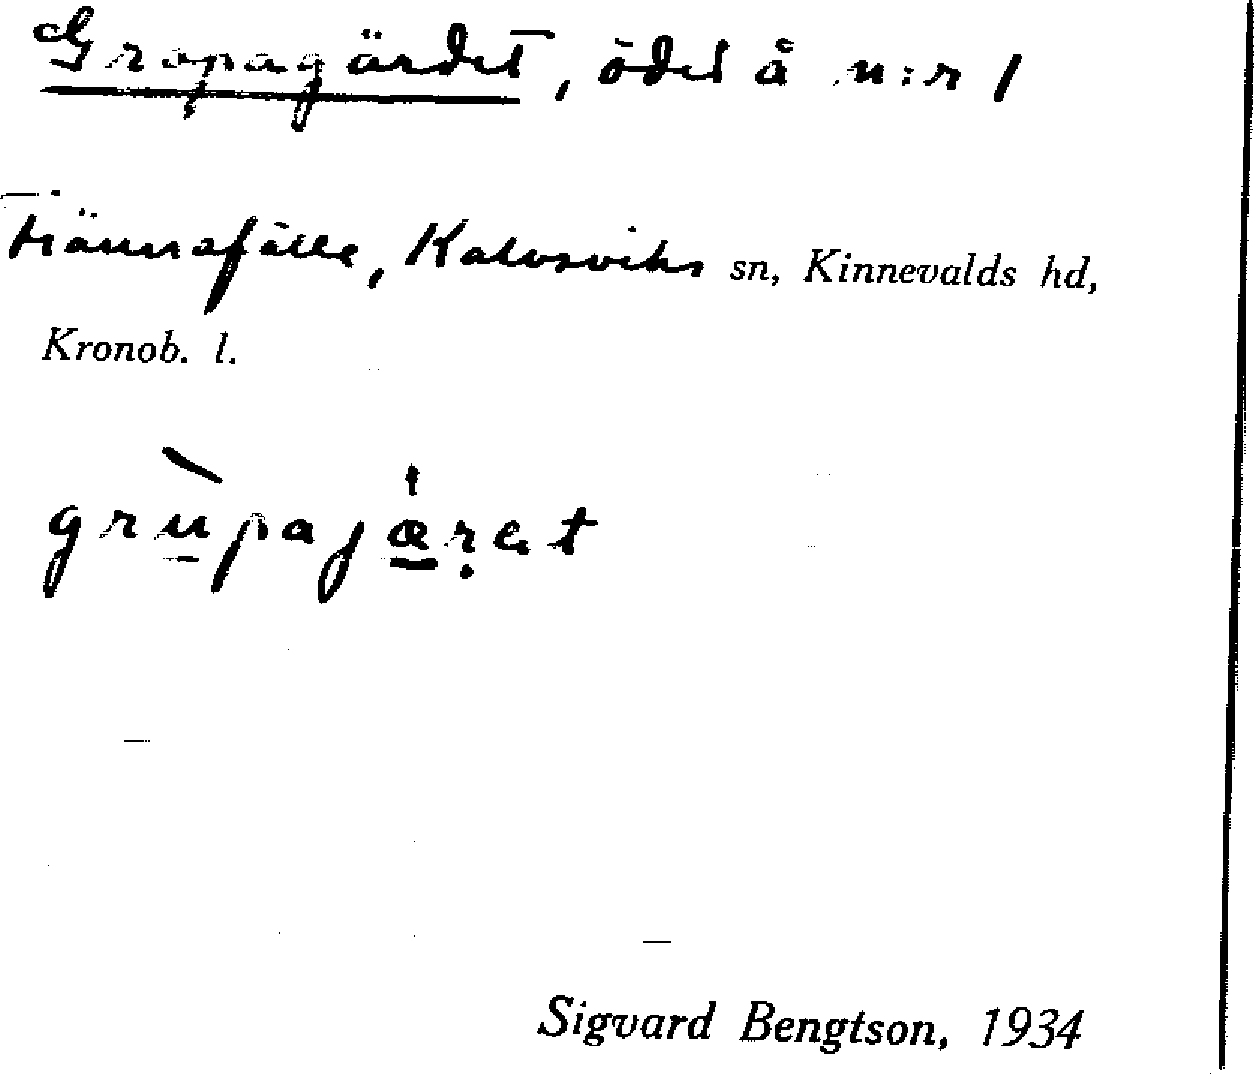 Gropagärdet, ödet å n:r 1
Tjännafälle, Kalvsviks sn, Kinnevalds hd,
Kronob. l.
grùpajæ̀ṛat
Sigvard Bengtson, 1934